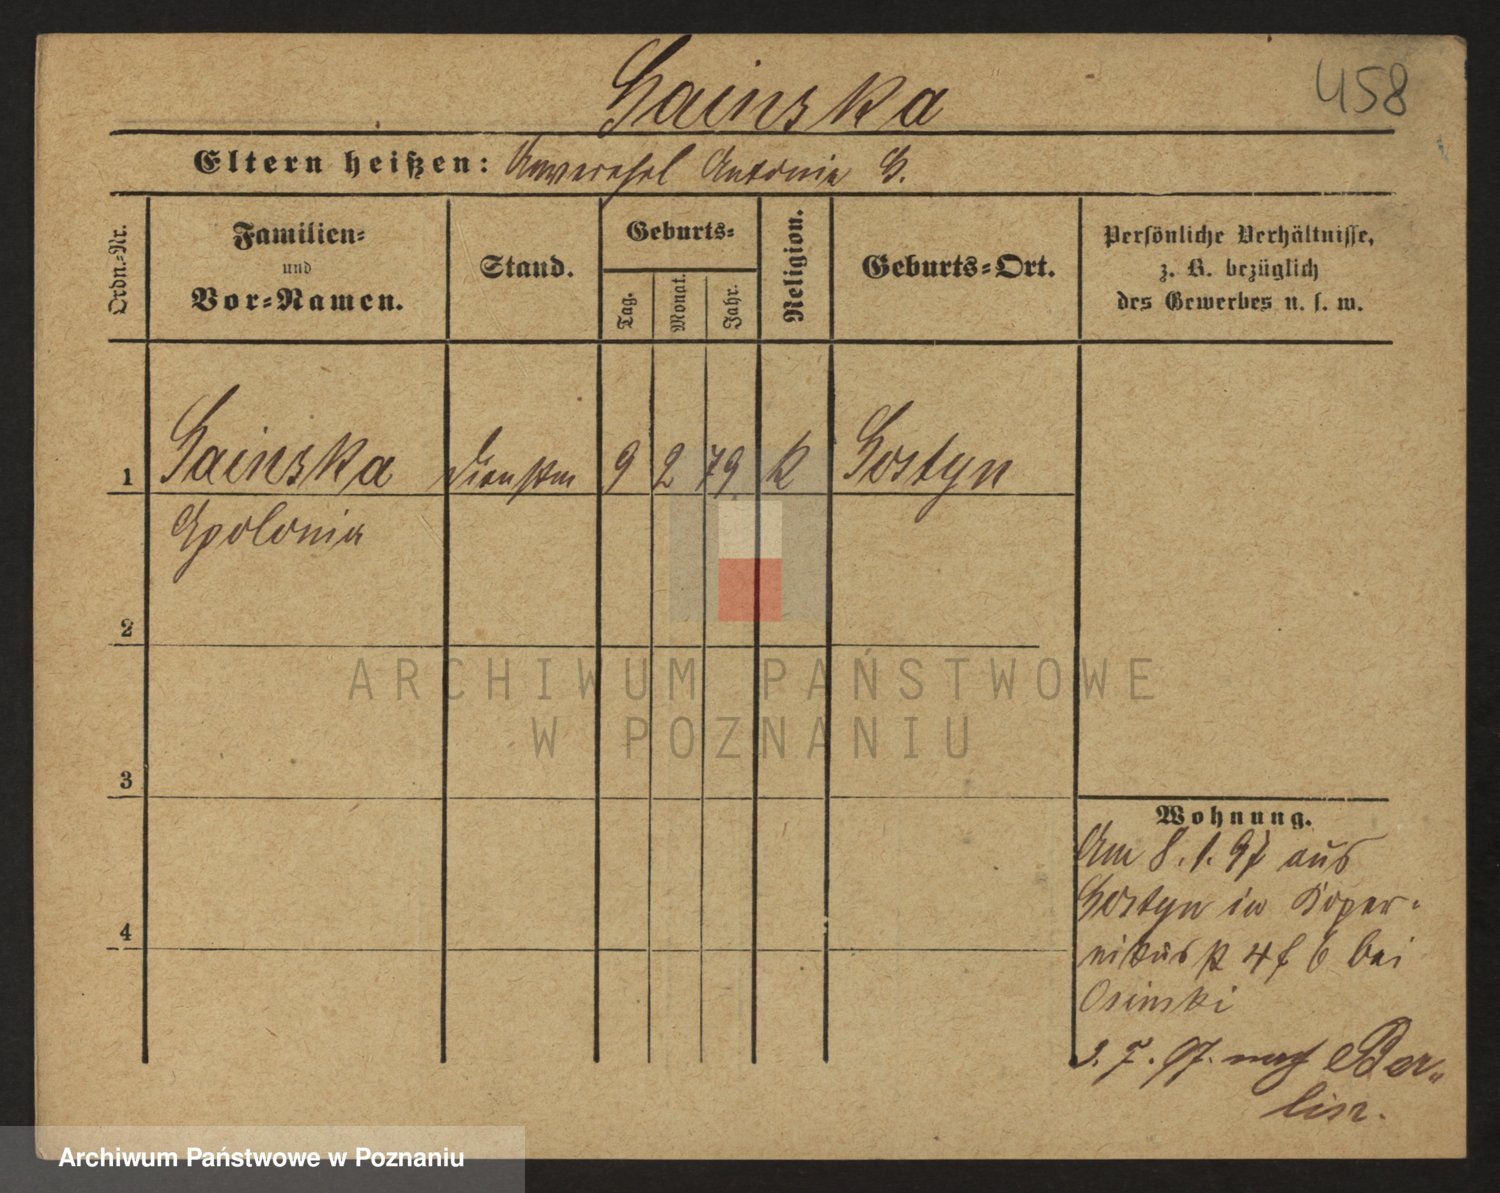 458
Gainska
Eltern heißen: Antonie G.
Ordn.-Nr.
Familien-
und
Vor-Namen.
Stand.
Geburts-
Tag.
Monat.
Jahr.
Religion.
Geburts-Ort.
Persönliche Verhältnisse,
z. B. bezüglich
des Gewerbes u. s. w.
1 Gainska Dienstm 9 2 79 k Gostyn
Apolonia
2
3
4
Wohnung.
Am 8. 1. 97 aus
Gostyn in Koper-
nikus 4 bei
Osinski
3. 7. 97. nach Ber-
lin.
ARCHIWUM PAŃSTWOWE
W POZNANIU
Archiwum Państwowe w Poznaniu